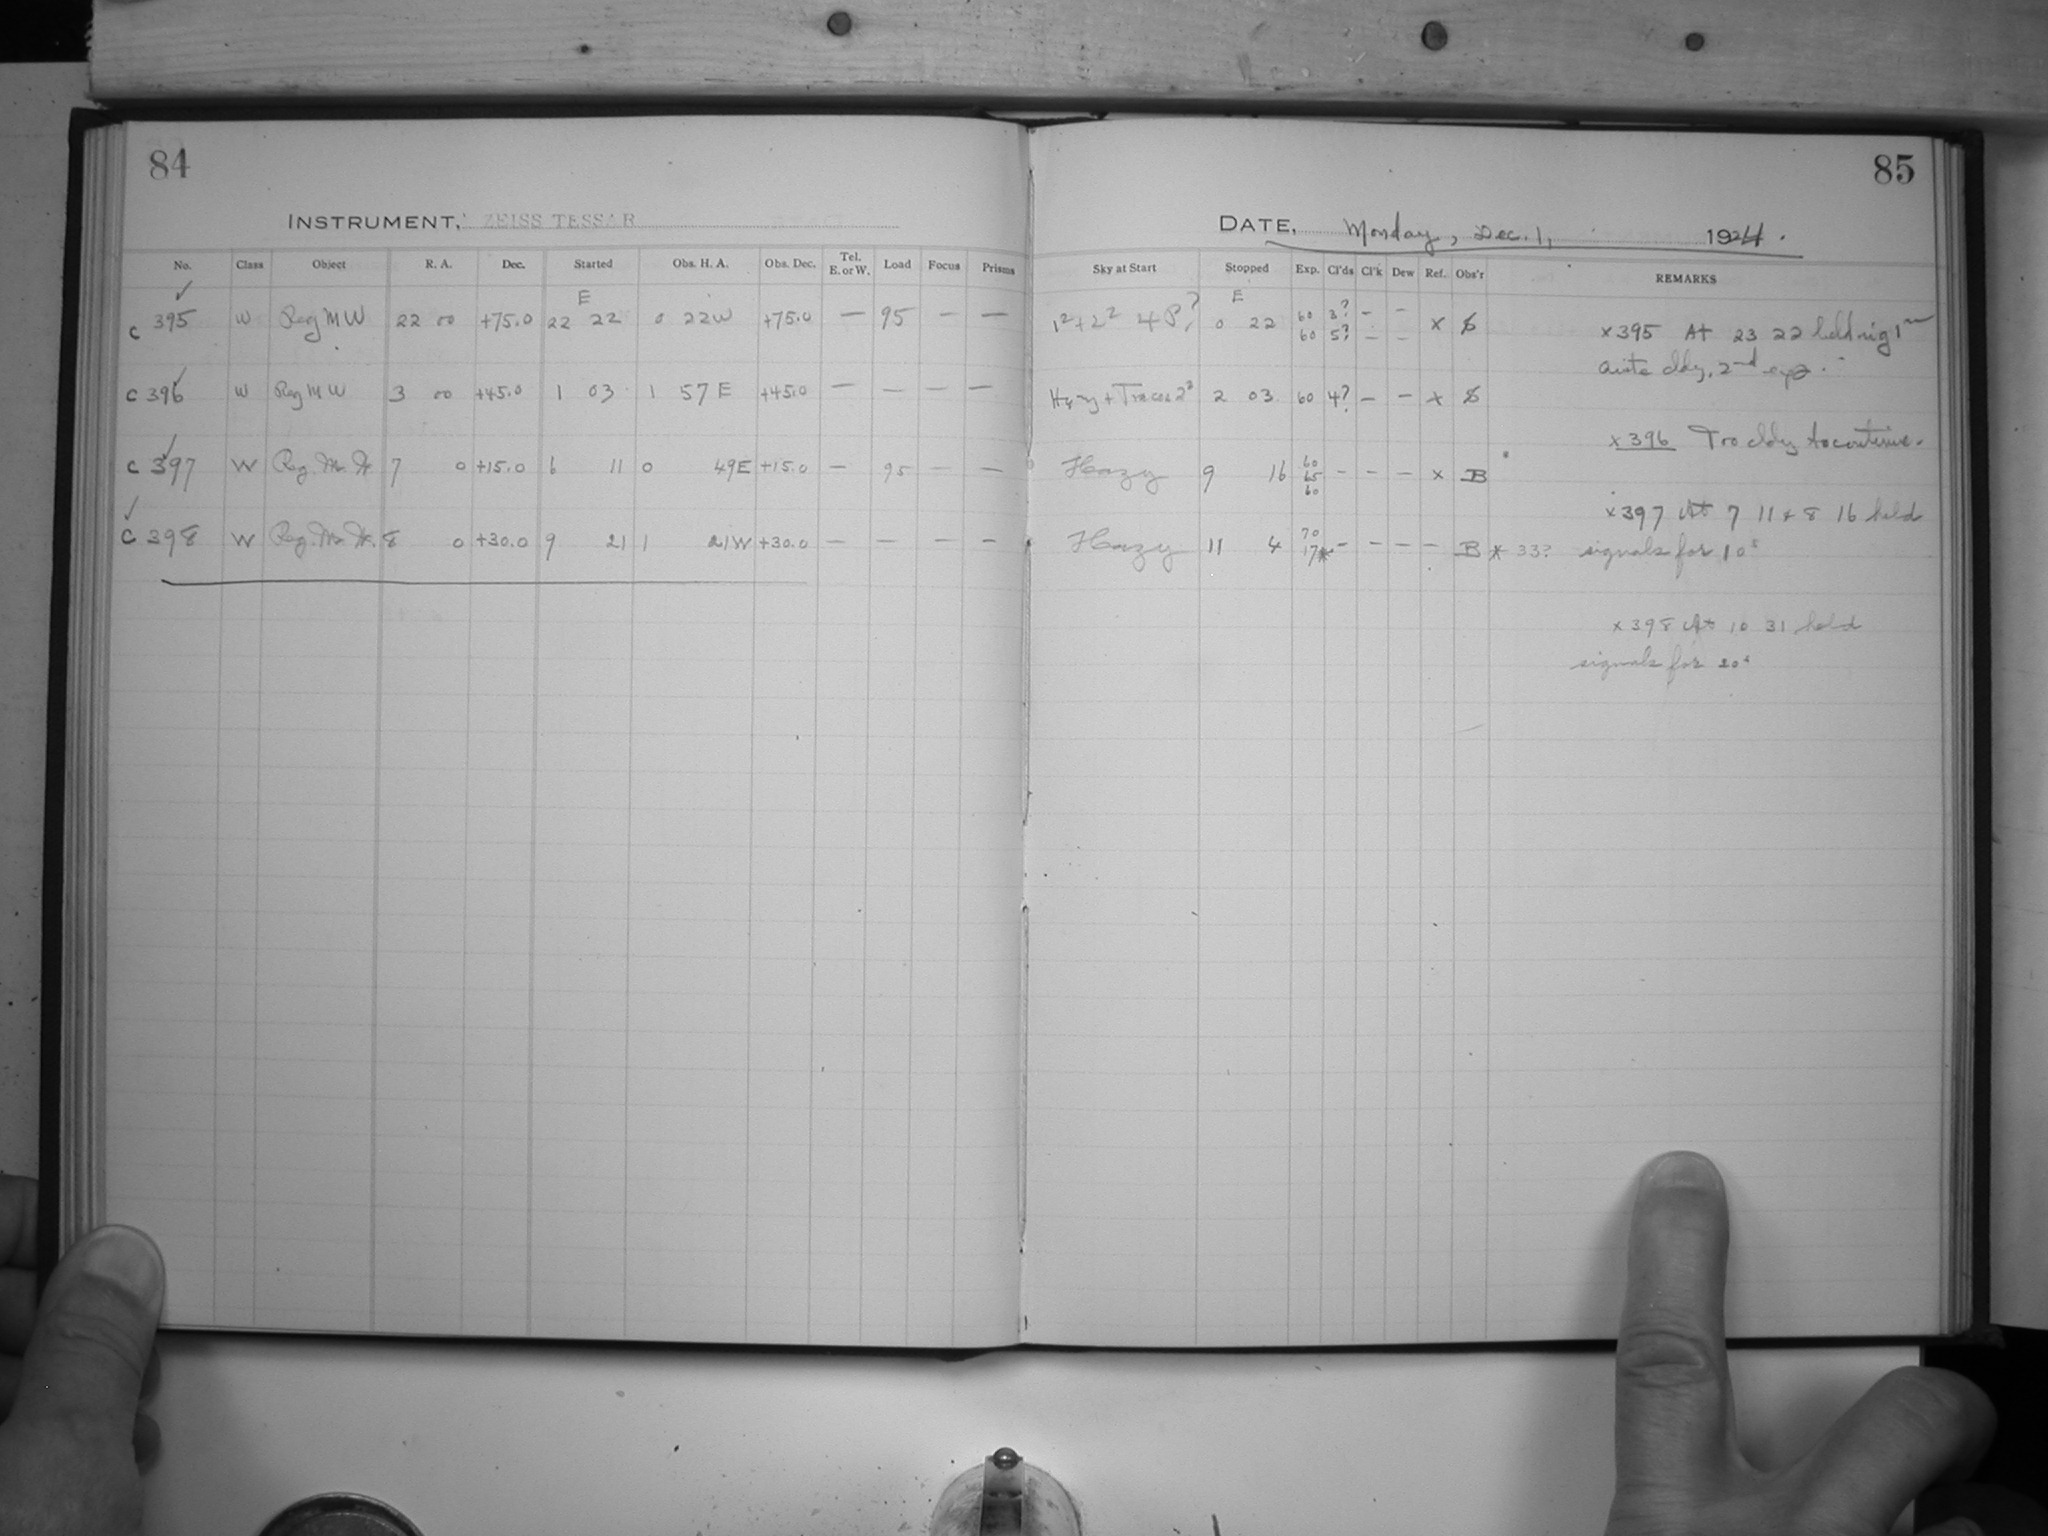 84
INSTRUMENT, ZEISS TESSAR
No. Class Object R. A. Dec. Started Obs. H. A. Obs. Dec. Tel. E. or W. Load Focus Prisms
C 395 W Reg MW 22 00 +75.0 22 E 22 0 22W +75.0 — 95 — —
C 396 W Reg MW 3 00 +45.0 1 03 1 57 E +45.0 — — — —
C 397 W Reg. M. W 7 0 +15.0 6 11 0 49E +15.0 — 95 — —
C 398 W Reg. M. W. 8 0 +30.0 9 21 1 21W +30.0 — — — —
85
DATE, Monday, Dec. 1, 1924.
Sky at Start Stopped Exp. Cl'ds Cl'k Dew Ref. Obs'r REMARKS
1² + 2² 4 P? 0 E 22 60 3? — — x
60 5? — —
+ Traces 2 03 60 4? — — x
Hazy 9 16 60 65 60 — — — x B
Hazy 11 4 70 17* — — — — B * 33?
x 395 At 23 22 1m
quite cldy, 2nd exp.
x 396 Too cldy to continue.
x 397 At 7 11 + 8 16 held
signals for 10s
x 398 At 10 31 held
signals for 20s